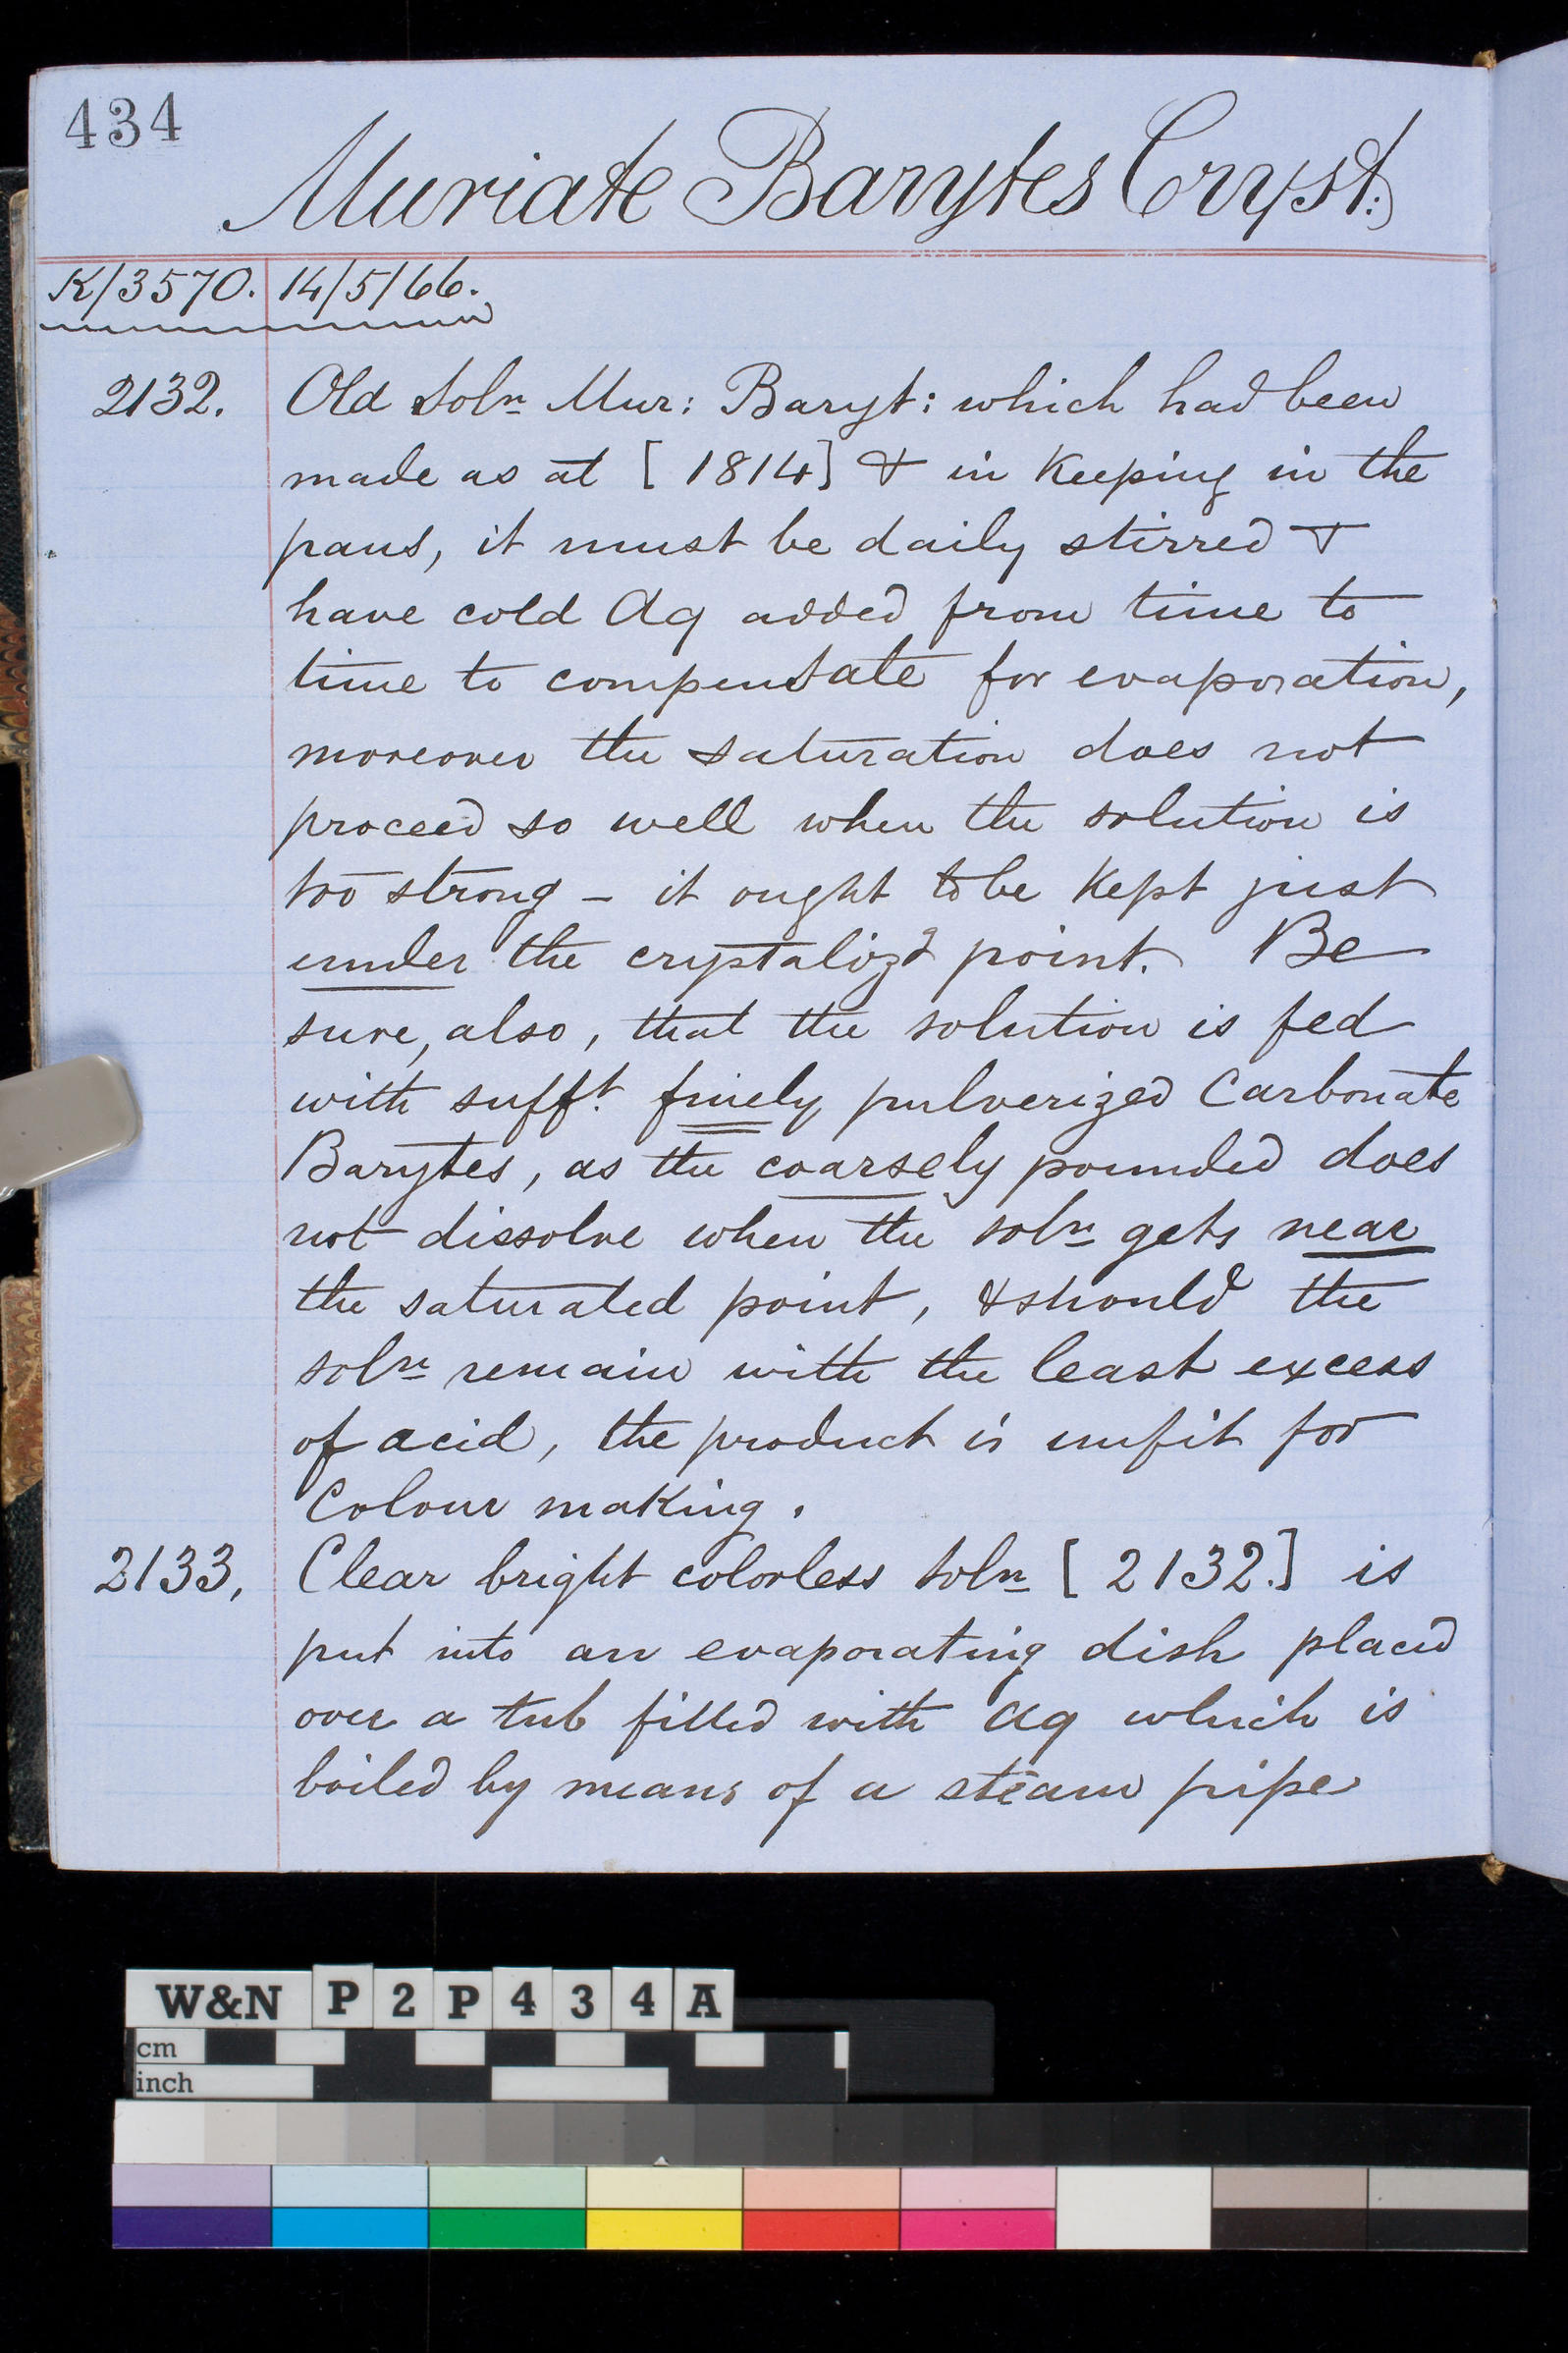 434
Muriate Barytes Cryst:
K/3570. 14/5/66.
2132. Old Soln Mur: Baryt: which had been
made as at [1814] & in keeping in the
pans, it must be daily stirred &
have cold Aq added from time to
time to compensate for evaporation,
moreover the saturation does not
proceed so well when the solution is
too strong – it ought to be kept just
under the crystalizd point. Be
sure, also, that the solution is fed
with sufft. finely pulverized Carbonate
Barytes, as the coarsely pounded does
not dissolve when the soln gets near
the saturated point, & should the
soln remain with the least excess
of acid, the product is unfit for
Colour making.
2133, Clear bright colorless Soln [2132.] is
put into an evaporating dish placed
over a tub filled with Aq which is
boiled by means of a steam pipe
W&N P2P434A
cm
inch